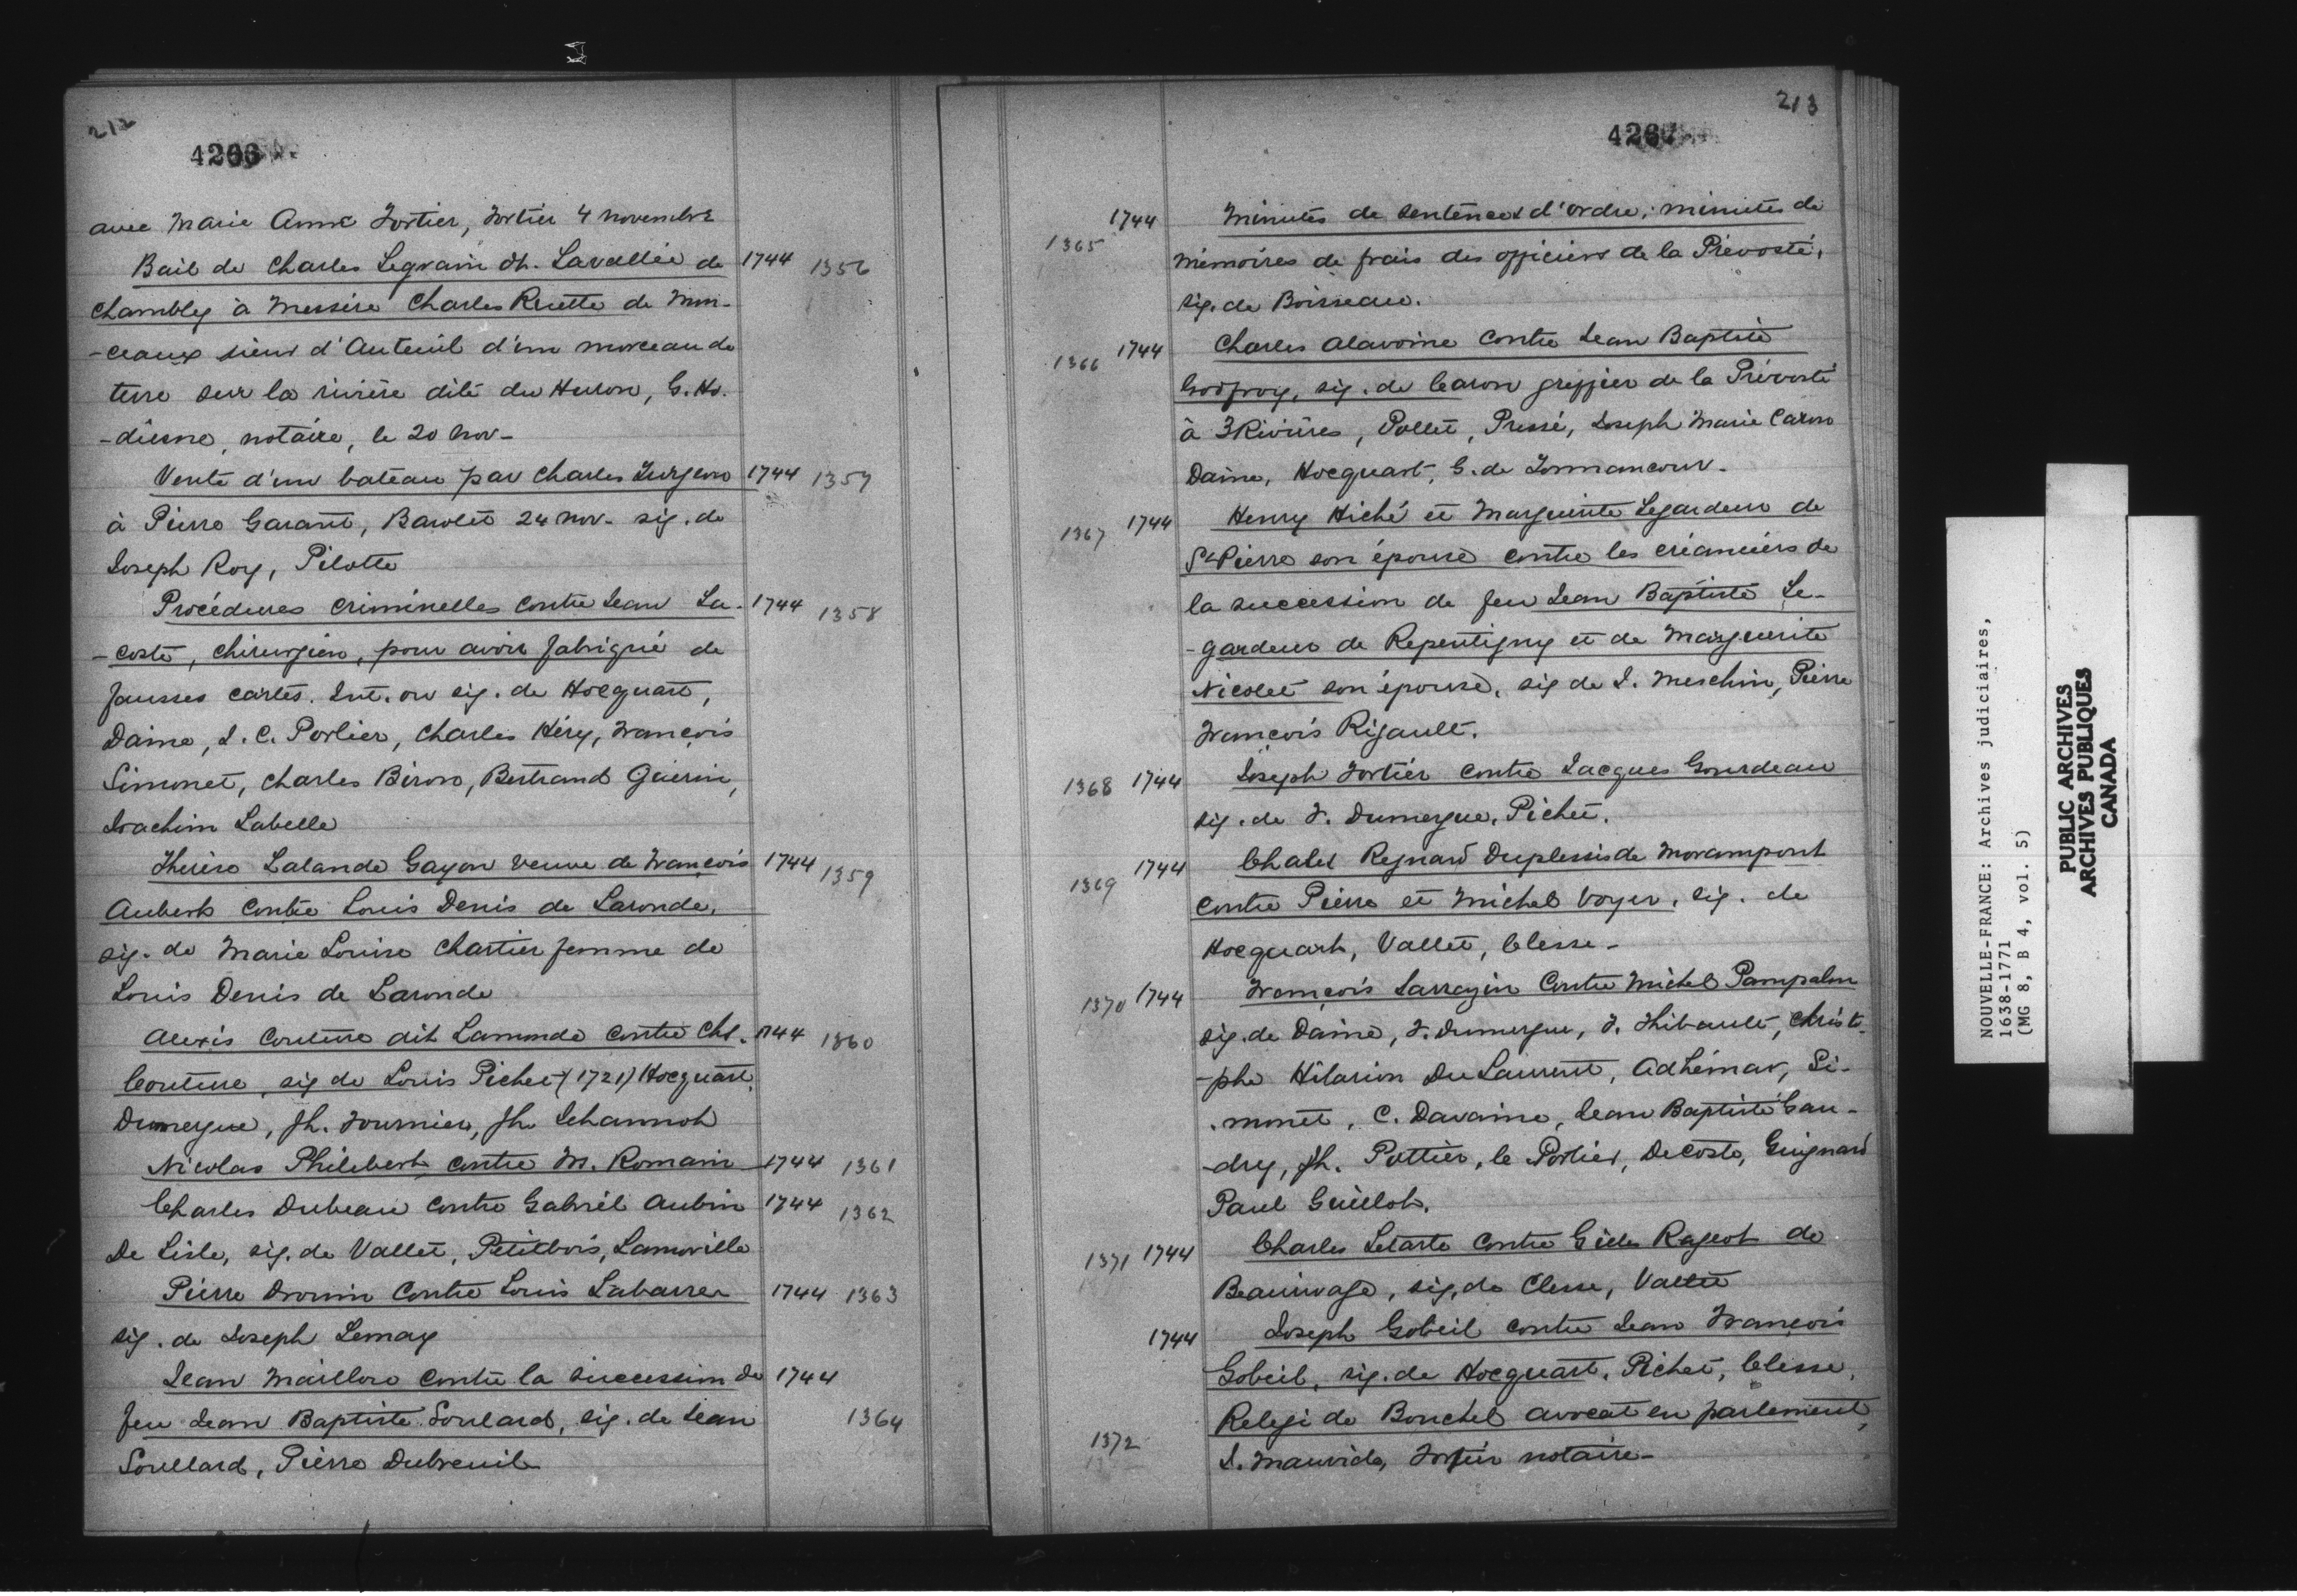 212
4266
avec Marie Anne Fortier, Fortier 4 novembre
Bail de Charles Legrain dt. Lavallée de 1744 1356
Chambley à Messire Charles Ruette de Mon-
-ceaux sieur d'Auteuil d'un morceau de
terre sur la rivière dite du Huron, G. Ho-
-diesne, notaire, le 20 nov-
Vente d'un bateau par Charles Turgeon 1744 1357
à Pierre Garant, Barolet 24 nov- sig. de
Joseph Roy, Pilotte
Procédures criminelles contre Jean La- 1744 1358
-coste, chirurgien, pour avoir fabriqué de
fausses cartes. Int. ou sig. de Hocquart,
Daine, J. C. Porlier, Charles Héry, François
Simonet, Charles Biron, Bertrand Guérin,
Joachim Labelle
Thérèse Lalande Gayon veuve de François 1744 1359
Aubert contre Louis Denis de Laronde,
sig. de Marie Louise Chartier femme de
Louis Denis de Laronde
Alexis Couture dit Lamonde contre Chs. 1744 1360
Couture, sig de Louis Pichet (1721) Hocquart,
Dumergue, Jh. Fournier, Jh
Nicolas Philebert contre M. Romain 1744 1361
Charles Dubeau contre Gabriel Aubin 1744 1362
De Lisle, sig. de Vallet, Petitbois, Lanoville
Pierre Drouin contre Louis Labarre 1744 1363
sig. de Joseph Lemay
Jean Maillou contre la succession de 1744
feu Jean Baptiste Soulard, sig. de Jean 1364
Soullard, Pierre Dubreuil
213
4267
1365 1744 Minutes de sentences d'ordre; minutes de
mémoires de frais des officiers de la Prévosté,
sig. de Boisseau.
1366 1744 Charles Alavoine contre Jean Baptiste
Godfroy, sig. de Caron greffier de la Prévosté
à 3 Rivières, Pollet, Pressé, Joseph Marie Caron
Daine, Hocquart, G. de Tonnancour-
1367 1744 Henry Hiché et Marguerite Legardeur de
St Pierre son épouse contre les créanciers de
la succession de feu Jean Baptiste Le-
-gardeur de Repentigny et de Marguerite
Nicolet son épouse, sig de J. Meschin, Pierre
François Rigault.
1368 1744 Joseph Fortier contre Jacques Gourdeau
sig. de F. Dumergue, Pichet.
1369 1744 Chales Regnard Duplessis de Morampont
contre Pierre et Michel Voyer, sig. de
Hocquart, Vallet, Clesse-
1370 1744 François Sarrazin contre Michel Pampalon
sig. de Daine, F. Dumergue, F. Thibault, Christo-
-phe Hilarion DuLaurent, Adhémar, Si-
-monet, C. Davaine, Jean Baptiste Gau-
-dry, Jh. Pottier, le Porlier, DeCoste, Guignard
Paul Guillot.
1371 1744 Charles Letarte contre Gilles Rageot de
Beaurivage, sig. de Clesse, Vallet
1744 Joseph Gobeil contre Jean François
Gobeil, sig. de Hocquart, Pichet, Clesse,
Relegi de Bouchel avocat en parlement,
1372 J. Mauvide, Fortier notaire-
NOUVELLE-FRANCE: Archives judiciaires,
1638-1771
(MG 8, B 4, vol. 5)
PUBLIC ARCHIVES
ARCHIVES PUBLIQUES
CANADA